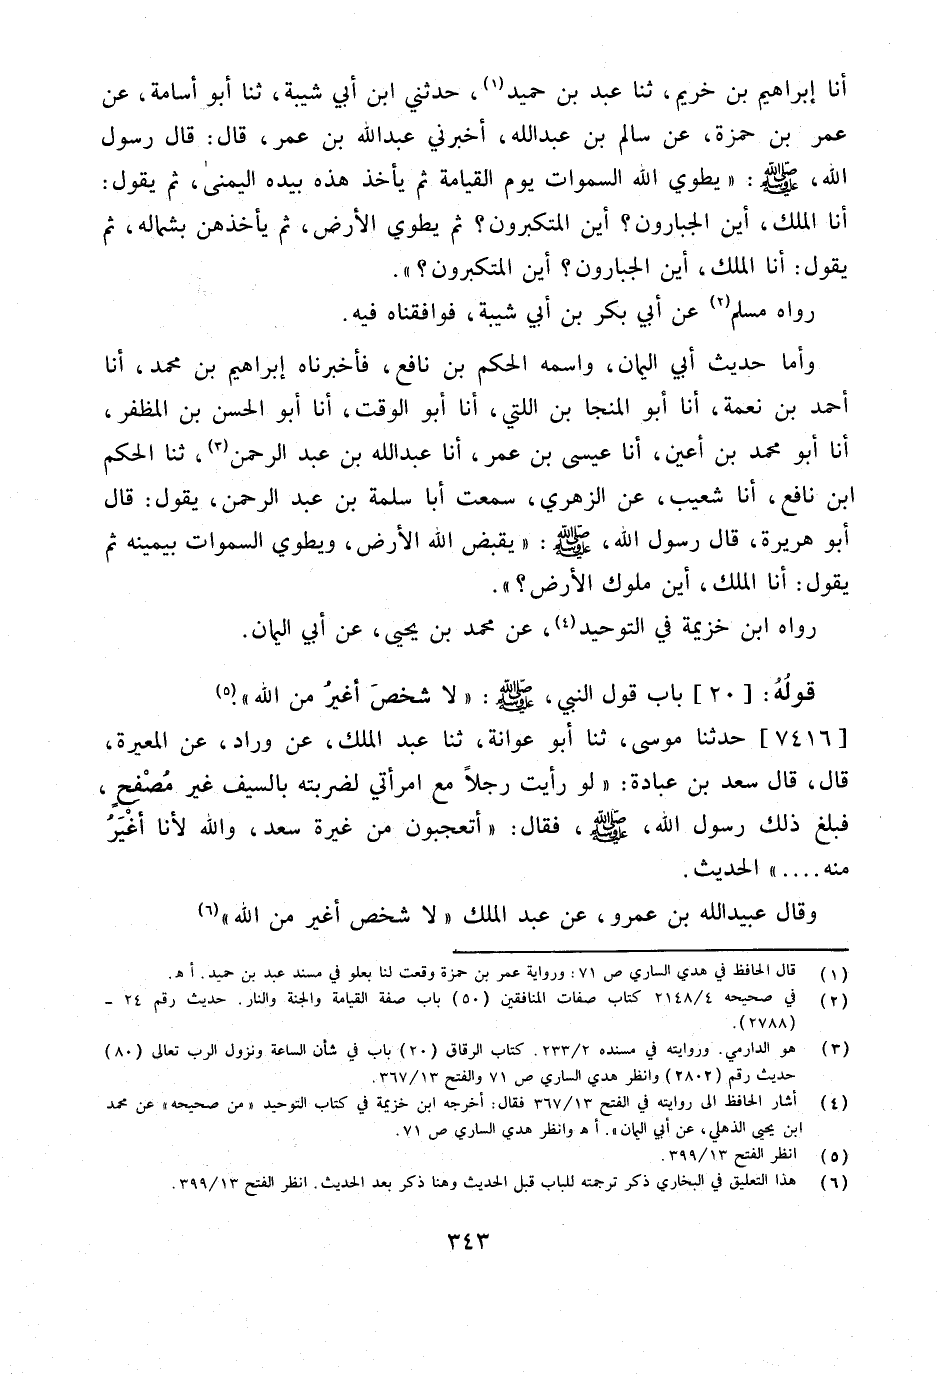 أنا إبراهيم بن خريم، ثنا عبد بن حميد(١)، حدثني ابن أبي شيبة، ثنا أبو أسامة، عن
عمر بن حمزة، عن سالم بن عبدالله، أخبرني عبدالله بن عمر، قال: قال رسول
الله، ﷺ: «يطوي الله السموات يوم القيامة ثم يأخذ هذه بيده اليمنىٰ، ثم يقول:
أنا الملك، أين الجبارون؟ أين المتكبرون؟ ثم يطوي الأرض، ثم يأخذهن بشماله، ثم
يقول: أنا الملك، أين الجبارون؟ أين المتكبرون؟».
رواه مسلم(٢) عن أبي بكر بن أبي شيبة، فوافقناه فيه.
وأما حديث أبي اليمان، واسمه الحكم بن نافع، فأخبرناه إبراهيم بن محمد، أنا
أحمد بن نعمة، أنا أبو المنجا بن اللتي، أنا أبو الوقت، أنا أبو الحسن بن المظفر،
أنا أبو محمد بن أعين، أنا عيسى بن عمر، أنا عبدالله بن عبد الرحمن(٣)، ثنا الحكم
ابن نافع، أنا شعيب، عن الزهري، سمعت أبا سلمة بن عبد الرحمن، يقول: قال
أبو هريرة، قال رسول الله، ﷺ: «يقبض الله الأرض، ويطوي السموات بيمينه ثم
يقول: أنا الملك، أين ملوك الأرض؟».
رواه ابن خزيمة في التوحيد(٤)، عن محمد بن يحيى، عن أبي اليمان.
قولُهُ: [٢٠] باب قول النبي، ﷺ: «لا شخصَ أغيرُ من الله».(٥)
[٧٤١٦] حدثنا موسى، ثنا أبو عوانة، ثنا عبد الملك، عن وراد، عن المعيرة،
قال، قال سعد بن عبادة: «لو رأيت رجلاً مع امرأتي لضربته بالسيف غير مُصْفِحٍ،
فبلغ ذلك رسول الله، ﷺ، فقال: «أتعجبون من غيرة سعد، والله لأنا أغْيَرُ
منه....» الحديث.
وقال عبيدالله بن عمرو، عن عبد الملك «لا شخص أغير من الله»(٦)
(١) قال الحافظ في هدي الساري ص ٧١: ورواية عمر بن حمزة وقعت لنا بعلو في مسند عبد بن حميد. أ هـ.
(٢) في صحيحه ٢١٤٨/٤ كتاب صفات المنافقين (٥٠) باب صفة القيامة والجنة والنار. حديث رقم ٢٤ -
(٢٧٨٨).
(٣) هو الدارمي. وروايته في مسنده ٢٣٣/٢. كتاب الرقاق (٢٠) باب في شأن الساعة ونزول الرب تعالى (٨٠)
حديث رقم (٢٨٠٢) وانظر هدي الساري ص ٧١ والفتح ٣٦٧/١٣.
(٤) أشار الحافظ الى روايته في الفتح ٣٦٧/١٣ فقال: أخرجه ابن خزيمة في كتاب التوحيد «من صحيحه» عن محمد
ابن يحيى الذهلي، عن أبي اليمان». أ هـ وانظر هدي الساري ص ٧١.
(٥) انظر الفتح ٣٩٩/١٣.
(٦) هذا التعليق في البخاري ذكر ترجمته للباب قبل الحديث وهنا ذكر بعد الحديث. انظر الفتح ٣٩٩/١٣.
٣٤٣